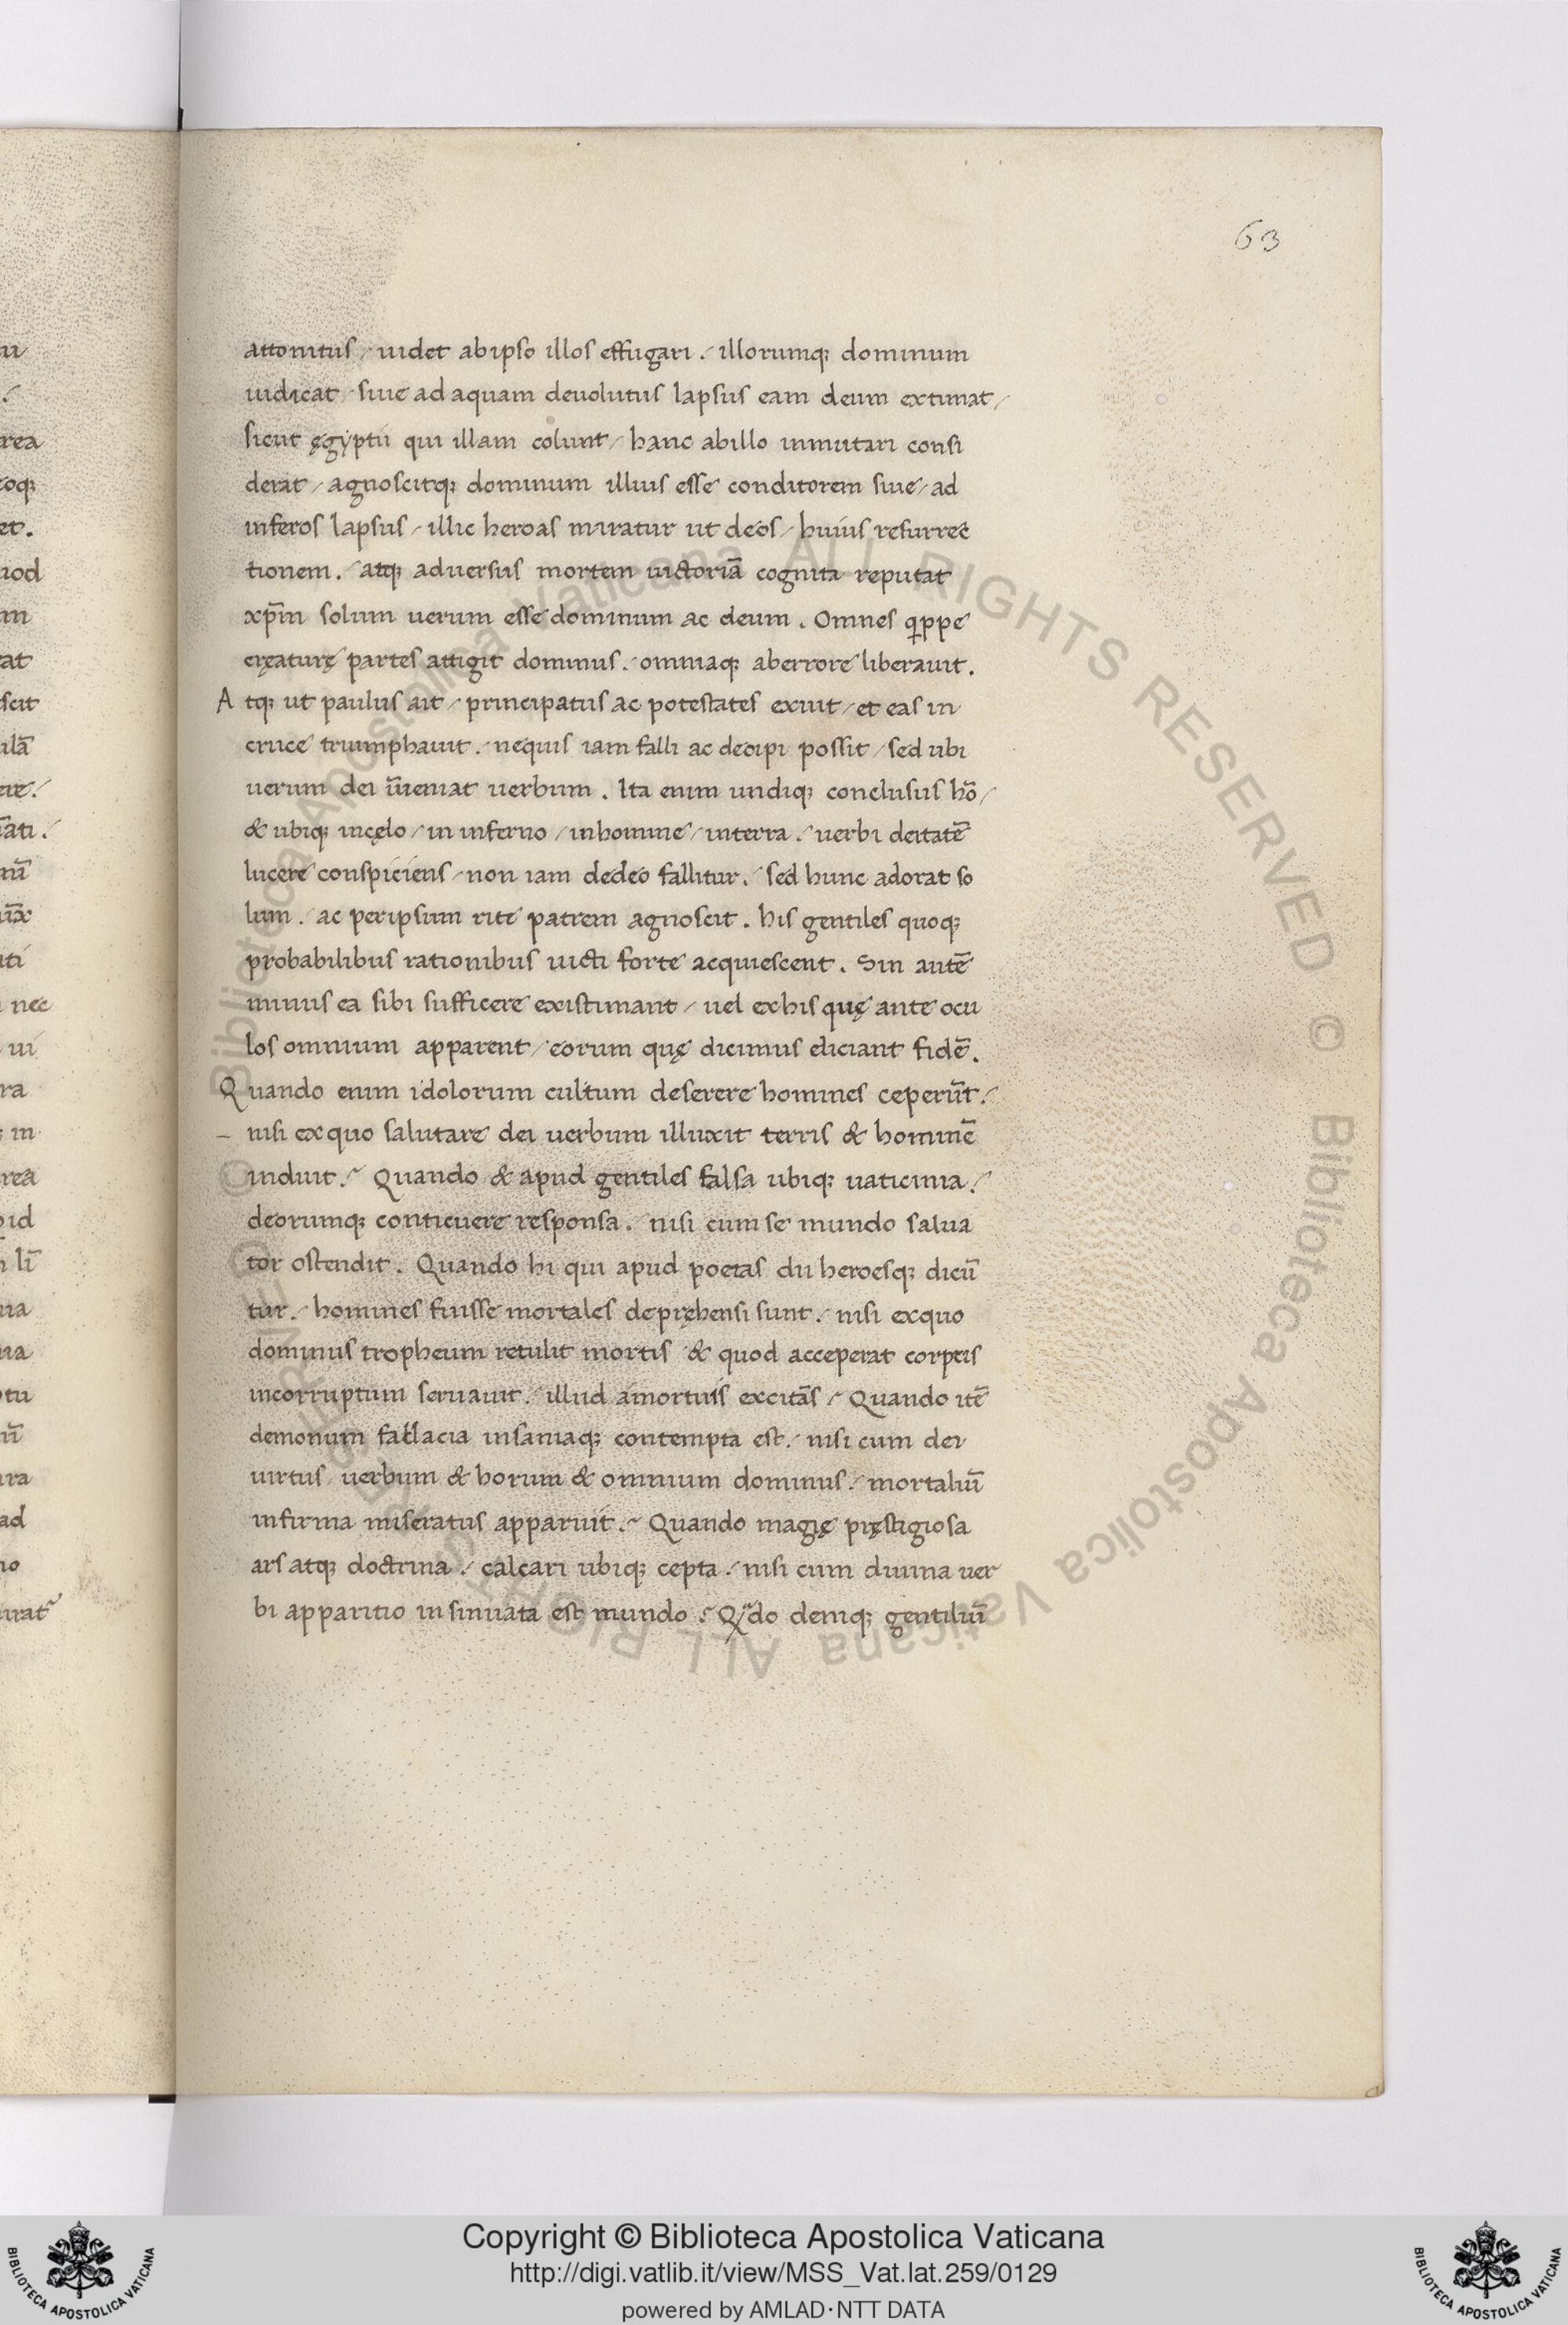 63
attonitus / uidet abipso illos effugari ./ illorumq; dominum
iudicat / siue ad aquam deuolutus lapsus eam deum extimat /
sicut ęgyptii qui illam colunt / hanc abillo inmutari consi
derat / agnoscitq; dominum illius esse conditorem siue / ad
inferos lapsus / illic heroas miratur ut deos / huius resurrec
tionem ./ atq; aduersus mortem uictoriā cognita reputat
xp̄m solum uerum esse dominum ac deum . Omnes q̇ppe
cręaturę partes attigit dominus ./ omniaq; aberrore liberauit .
A tq; ut paulus ait / principatus ac potestates exiuit / et eas in
cruce triumphauit ./ nequis iam falli ac decipi possit / sed ubi
uerum dei īueniat uerbum . Ita enim undiq; conclusus hō /
& ubiq; incęlo / in inferno / inhomine / interra ./ uerbi deitatē
lucere conspiciens / non iam dedeo fallitur ./ sed hunc adorat so
lum ./ ac peripsum rite patrem agnoscit . his gentiles quoq;
probabilibus rationibus uicti forte acquiescent . Sin autē
minus ea sibi sufficere existimant / uel exhis quę ante ocu
los omnium apparent / eorum quę dicimus eliciant fidē .
Q uando enim idolorum cultum deserere homines ceperūt ./
– nisi exquo salutare dei uerbum illuxit terris & hominē
induit ./ Quando & apud gentiles falsa ubiq; uaticinia ./
deorumq; conticuere responsa ./ nisi cum se mundo salua
tor ostendit . Quando hi qui apud poetas dii heroesq; dicū
tur ./ homines fuisse mortales depręhensi sunt ./ nisi exquo
dominus tropheum retulit mortis & quod acceperat corpus
incorruptum seruauit ./ illud amortuis excitās / Quando itē
demonum fallacia insaniaq; contempta est ./ nisi cum dei
uirtus / uerbum & horum & omnium dominus ./ mortaliū
infirma miseratus apparuit ./ Quando magię pręstigiosa
ars atq; doctrina ./ calcari ubiq; cepta ./ nisi cum diuina uer
bi apparitio insinuata est mundo ./ Qn̄do deniq; gentiliū
Copyright © Biblioteca Apostolica Vaticana
http://digi.vatlib.it/view/MSS_Vat.lat.259/0129
powered by AMLAD·NTT DATA